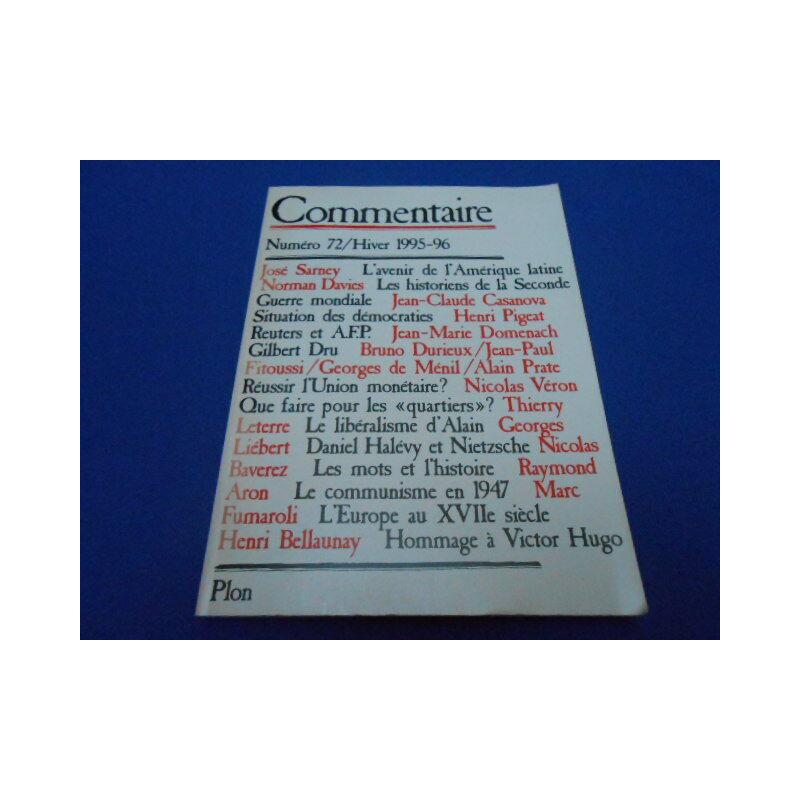 Commentaire
Numéro 72/Hiver 1995-96
José Sarney L'avenir de l'Amérique latine
Norman Davies Les historiens de la Seconde
Guerre mondiale Jean-Claude Casanova
Situation des démocraties Henri Pigeat
Reuters et A.F.P. Jean-Marie Domenach
Gilbert Dru Bruno Durieux/Jean-Paul
Fitoussi/Georges de Ménil/Alain Prate
Réussir l'Union monétaire? Nicolas Véron
Que faire pour les «quartiers»? Thierry
Leterre Le libéralisme d'Alain Georges
Liébert Daniel Halévy et Nietzsche Nicolas
Baverez Les mots et l'histoire Raymond
Aron Le communisme en 1947 Marc
Fumaroli L'Europe au XVIIe siècle
Henri Bellaunay Hommage à Victor Hugo
Plon